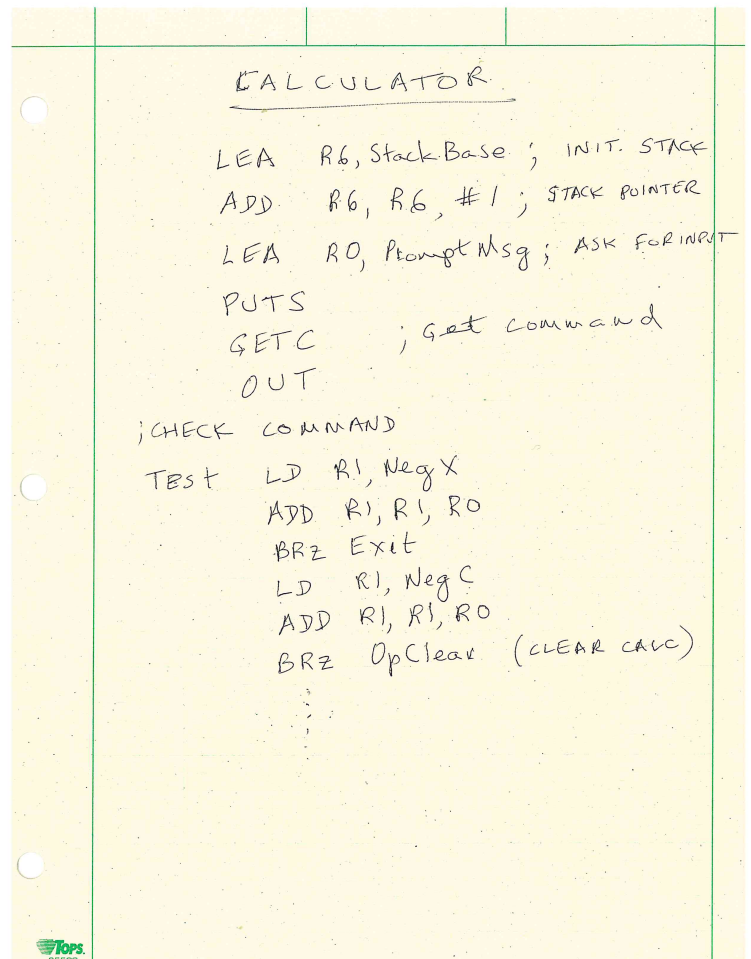 CALCULATOR
LEA R6, StackBase ; INIT. STACK
ADD R6, R6, #1 ; STACK POINTER
LEA R0, PromptMsg ; ASK FOR INPUT
PUTS
GETC ; Get command
OUT
; CHECK COMMAND
TEST LD R1, NegX
ADD R1, R1, R0
BRz Exit
LD R1, NegC
ADD R1, R1, R0
BRz OpClear (CLEAR CALC)
TOPS.